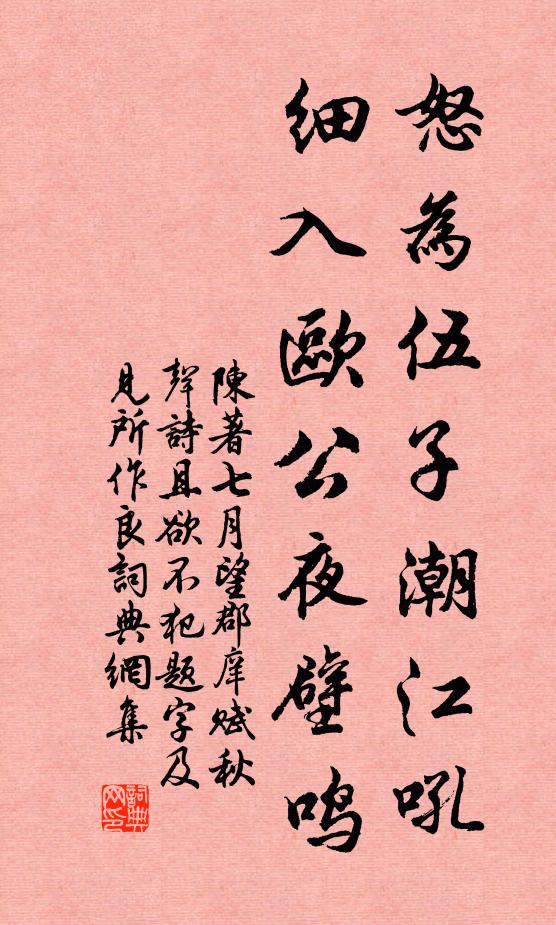 怒為伍子潮江吼
細入歐公夜壁鳴
陳著七月望郡庠賦秋
聲詩且欲不犯題字及
見所作良詞典網集
詞典网印